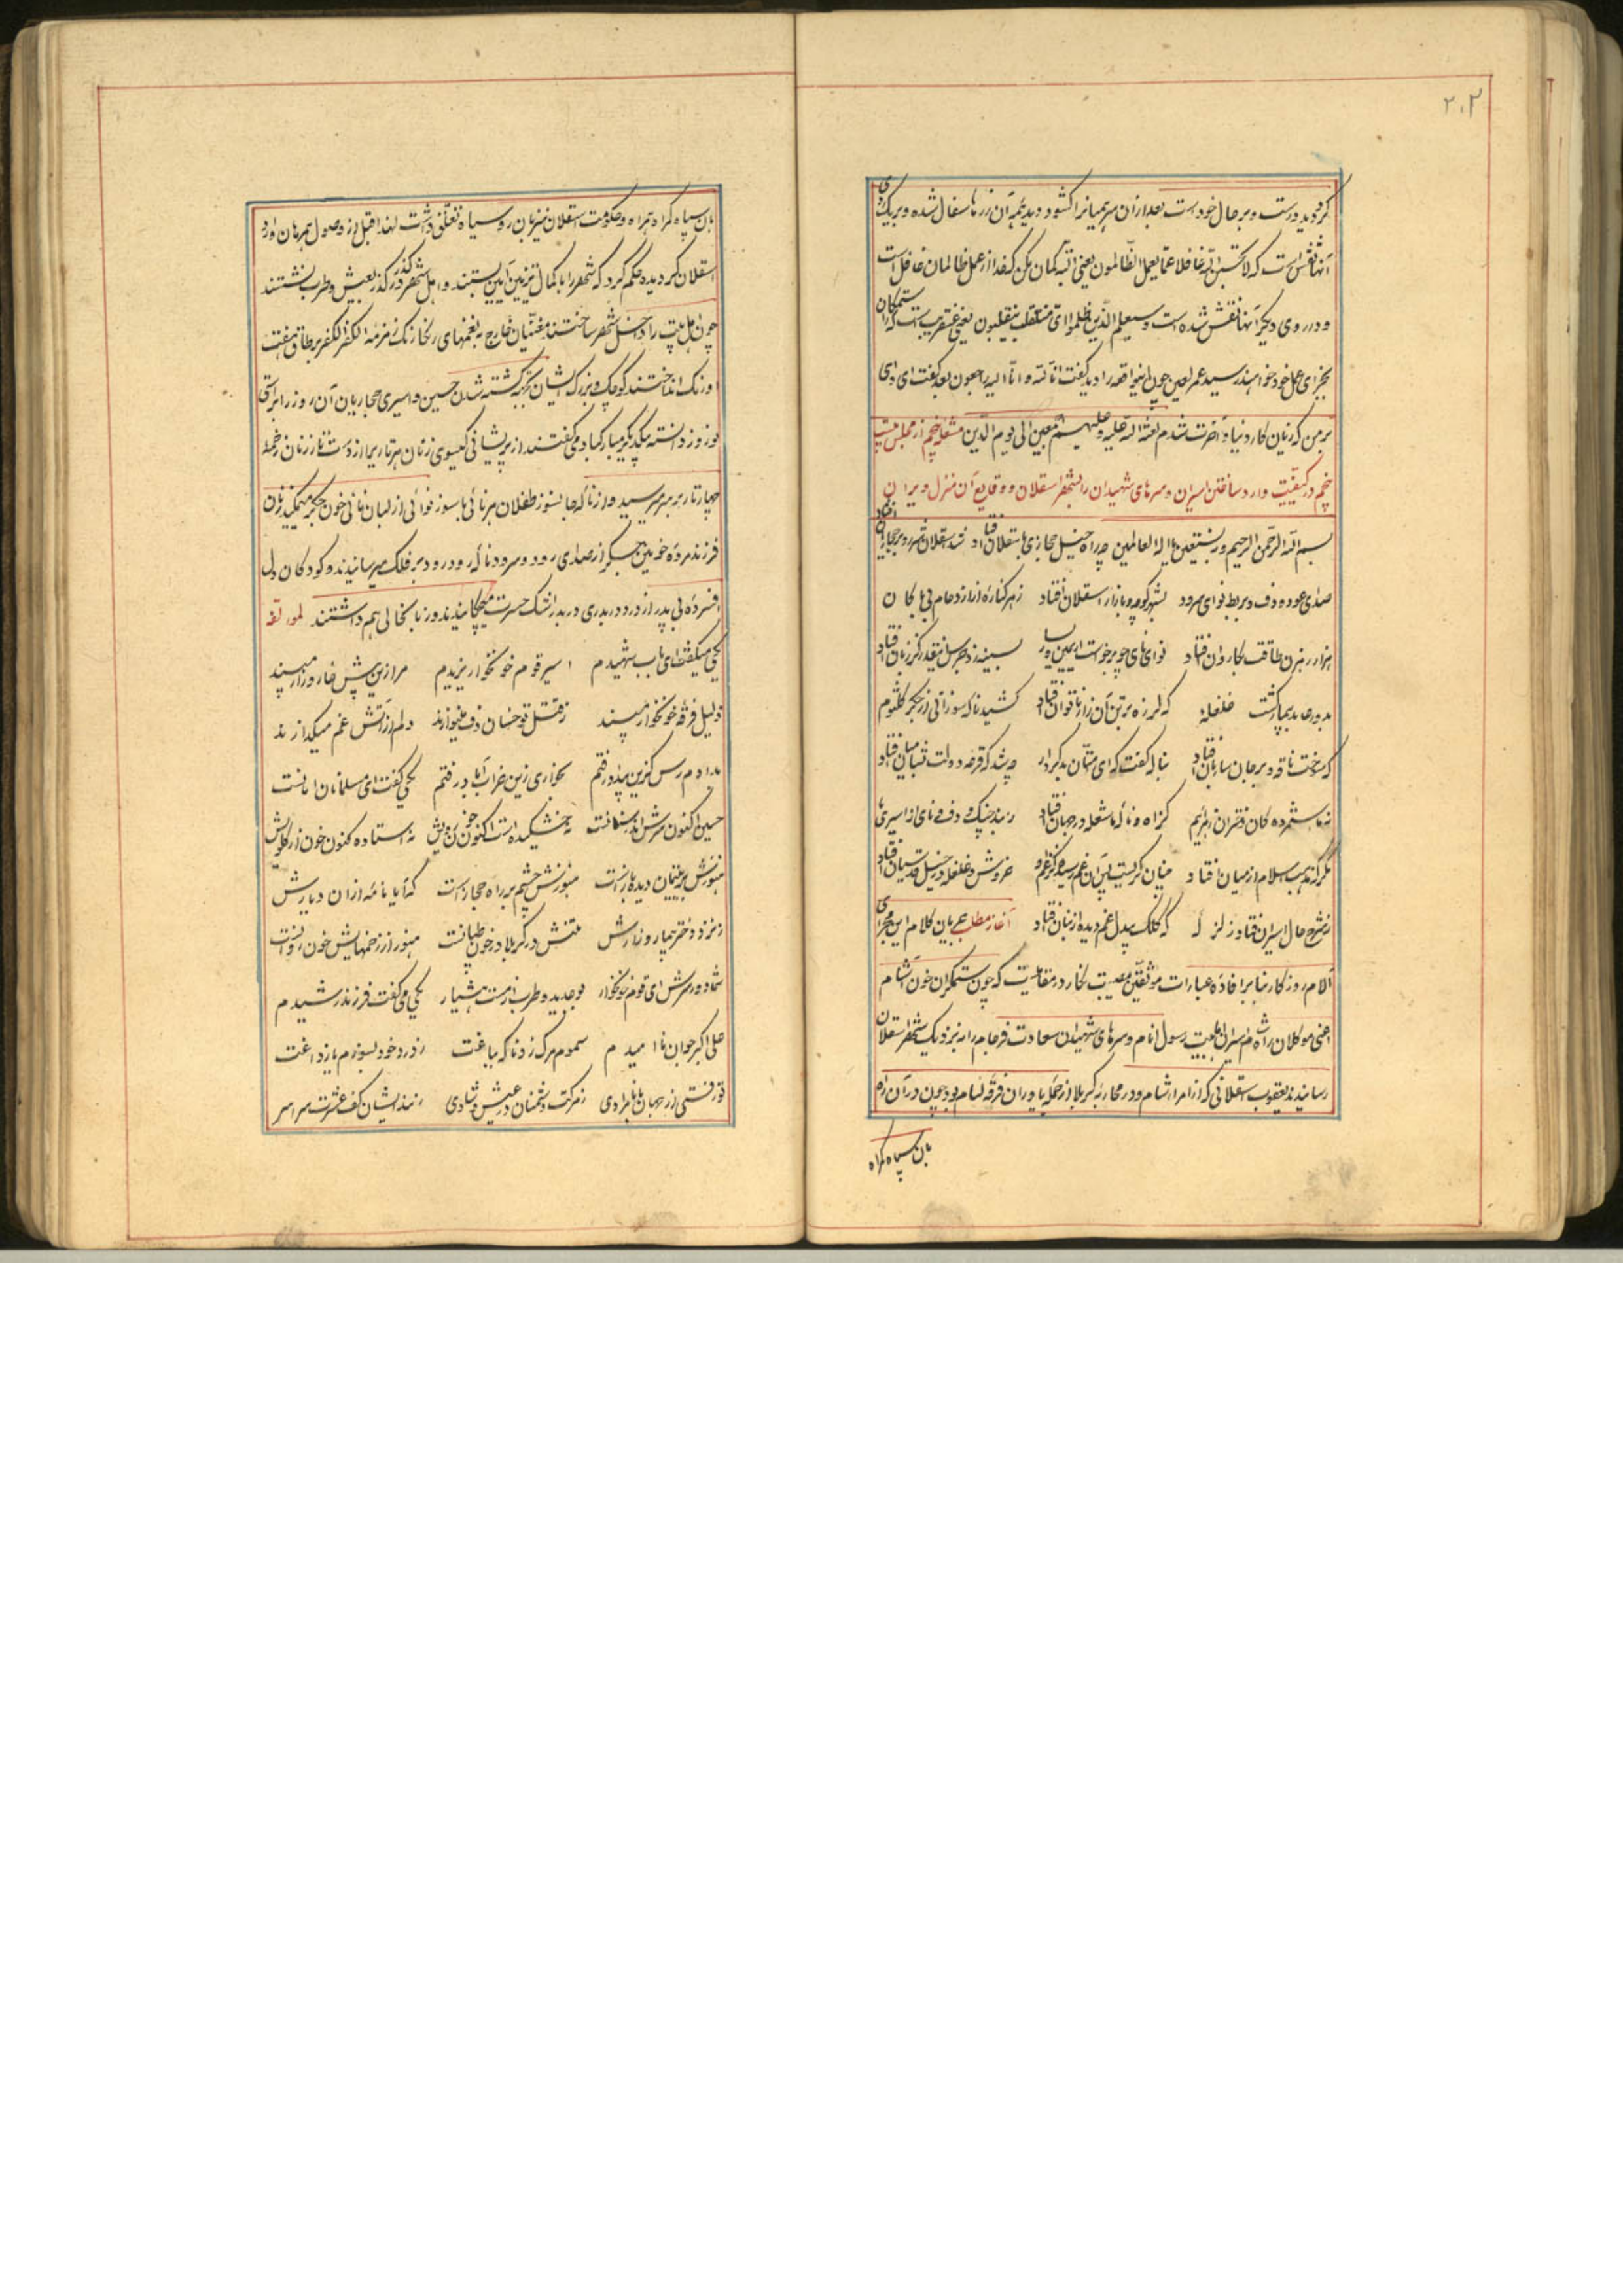 ۲۰۳
کردید درست و بر حال خود است بعد از آن سر همیانرا کشود و دید همه آن زرها سفال شده و بر یک روی
آنها نقش است که لا تحسبن الله غافلا عما یعمل الظالمون یعنی البته گمان مکن که خدا از عمل ظالمان غافل است
و در روی دیگر آنها نقش شده است و سیعلم الذین ظلموا ای منقلب ینقلبون یعنی عنقریب است که ستمکاران
بجزای عمل خود خواهند رسید عمر لعین چون این واقعه را دید گفت انا لله و انا الیه راجعون بعد گفت ای وای
بر من که زیان کار دنیا و آخرت شدم لعنة الله علیه و علیهم اجمعین الی یوم الدین مشعله پنجم از مجلس
پنجم در کیفیت وارد ساختن اسیران و سرهای شهیدان را بشهر اسقلان و وقایع آن منزل ویران
بسم الله الرحمن الرحیم و به نستعین یا اله العالمین چه راه خیل حجازی باسقلان افتاد
صدای عود و دف و بربط نوای سرود بشهر و کوچه و بازار اسقلان افتاد ز هر کناره از ازدحام
هزار رهزن طاقت بکاروان افتاد نوای نای
بدور عابد بیمار گشت غلغله که لرزه بر تن آن زار ناتوان افتاد کشید ناله سوزانی از جگر کلثوم
که سوخت ناقه و بر جان ساربان افتاد بناله گفت که ای امتان بدکردار چه شد که قرعه دولت
نه ما ستمزده گان دختران زهرائیم کز آه و ناله ما شعله در جهان افتاد زنید چنگ و دف و نای از اسیری ما
مگر که مذهب اسلام از میان افتاد چنان گریست خروش و غلغله در خیل قدسیان افتاد
ز شرح حال اسیران فتاد زلزله که کلک بیدل غم دیده از بنان افتاد آغاز مطلب
آلام روز کار بنا بر افاده عبارات موثقین مصیبت نگار در مقامیست که چون ستمگران خون آشام
اعنی موکلان راه شام اسیران اهلبیت رسول انام و سرهای شهیدان سعادت فرجام را به نزدیک شهر اسقلان
رسانیدند یعقوب اسقلانی که از امراء شام و در محاربه کربلا از جمله یاوران فرقه لئام بود چون در آن راه
بان سپاه گمراه
بان سپاه گمراه همراه و حکومت اسقلان نیز بان رو سیاه تعلق داشت لهذا قبل از وصول همرهان وارد
اسقلان گردیده حکم کرد که شهر را با کمال تزیین آیین بستند و اهل شهر در گذر گذر بعیش و طرب نشستند
چون اهل بیت را داخل شهر ساختند مغنیان خارج به نغمهای رنگارنگ زمزمه الکفر الکفر بر طاق هفت
اورنگ انداختند کوچک و بزرگ ایشان بجهة کشته شدن حسین و اسیری حجازیان آن روز را براستی
نوروز دانسته بیکدیگر مبارکباد می گفتند از پریشانی گیسوی زنان هر تار
چهارتار بر سر میرسید و از ناله جانسوز طفلان هر نائی با سوز نوائی از لبان نائی خون جگر میچکید زنان
فرزند مرده خونین جگر از صدای رود و سرود ناله رود رود بر فلک میرسانیدند و کودکان دل
افسرده بی پدر از درد دربدری دربدر اشک حسرت میچکانیدند و زنان بحالی هم داشتند لمولفه
یکی میگفت ای باب شهیدم اسیر قوم خونخوار یزیدم مرا زین بیش خار و زار مپسند
ذلیل فرقه خونخوار مپسند ز قتل تو خسان دف مینوازند دلم از آتش غم میگدازند
بدادم رس کزین بیداد رفتم بخواری زین خراب آباد رفتم یکی گفت ای مسلمانان
حسین اکنون سرش اندر سنانست نه خشکیده است اکنون خون رویش نه استاده کنون خون از گلویش
هنوزش بر یتیمان دیده بازاست هنوزش چشم بر راه حجاز است که آید نامه از آن دیارش
ز نزد دختر بیمار و زارش تنش در کربلا در خون طپانست هنوز از زخمهایش خون روانست
شما دور سرش ای قوم خونخوار بوجدید و طرب از مست و هشیار یکی می گفت فرزند رشیدم
علی اکبر جوان نا امیدم سموم مرگ زد ناگه بباغت ز درد خود بسوزم یا ز داغت
تو رفتی از جهان با نامرادی ز مرگت دشمنان در عیش و شادی زنند ایشان کف عشرت سراسر